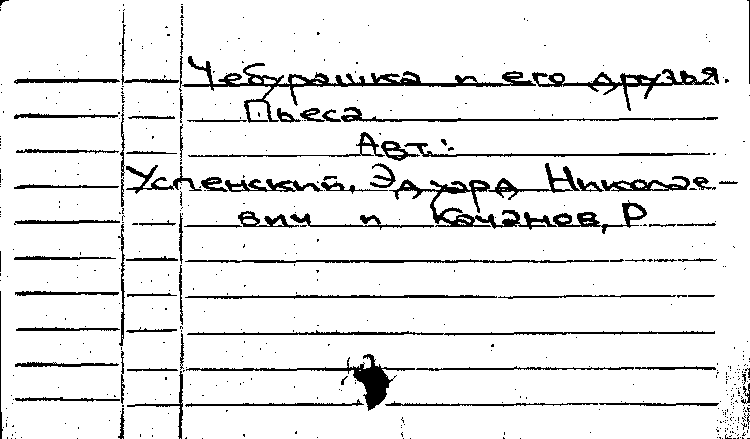 Чебурашка и его друзья.
Пьеса.
Авт.:
Успенский, Эдуард Николае-
вич и Качанов, Р